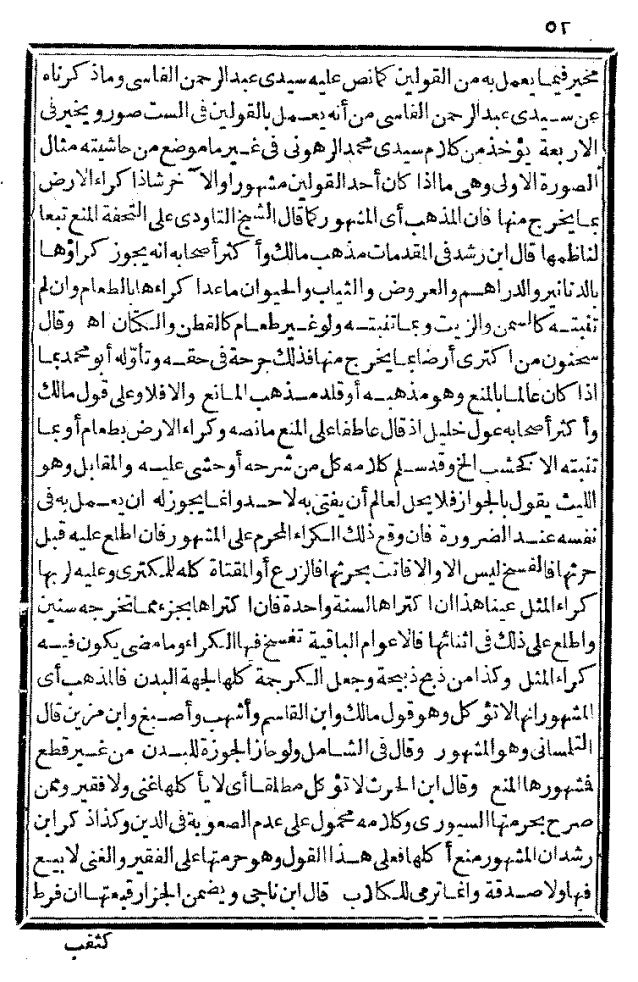 ٥٢
مخير فيما يعمل به من القولين كما نص عليه سيدى عبد الرحمن الفاسى وما ذكرناه
عن سيدى عبد الرحمن الفاسى من أنه يعمل بالقولين فى الست صور ويخير فى
الاربعة يؤخذ من كلام سيدى محمد الرهونى فى غير ما موضع من حاشيته مثال
الصورة الاولى وهى ما اذا كان أحد القولين مشهورا والآخر شاذا كراء الارض
بما يخرج منها فان المذهب أى المشهور كما قال الشيخ التاودى على التحفة المنع تبعا
لناظمها قال ابن رشد فى المقدمات مذهب مالك وأكثر أصحابه انه يجوز كراؤها
بالدنانير والدراهم والعروض والثياب والحيوان ما عدا كراءها بالطعام وان لم
تنبته كالسمن والزيت وبما تنبته ولو غير طعام كالقطن والكتان اه وقال
سحنون من اكترى أرضا بما يخرج منها فذلك جرحة فى حقه وتأوله أبو محمد بما
اذا كان عالما بالمنع وهو مذهبه أو قلد مذهب المانع والا فلا وعلى قول مالك
وأكثر أصحابه عول خليل اذ قال عاطفا على المنع ما نصه وكراء الارض بطعام أو بما
تنبته الا كخشب الخ وقد سلم كلامه كل من شرحه أو حشى عليه والمقابل وهو
الليث يقول بالجواز فلا يحل لعالم أن يفتى به لاحد وانما يجوز له ان يعمل به فى
نفسه عند الضرورة فان وقع ذلك الكراء المحرم على المشهور فان اطلع عليه قبل
حرثها فالفسخ ليس الا والا فاتت بحرثها فالزرع أو المقتاة كله للمكترى وعليه لربها
كراء المثل عينا هذا ان اكتراها لسنة واحدة فان اكتراها بجزء مما تخرجه سنين
واطلع على ذلك فى اثنائها فالاعوام الباقية تفسخ فيها الكراء وما مضى يكون فيه
كراء المثل وكذا من ذبح ذبيحة وجعل الكرجمة كلها لجهة البدن فالمذهب أى
المشهور انها لا تؤكل وهو قول مالك وابن القاسم وأشهب وأصبغ وابن مزين قال
التلمسانى وهو المشهور وقال فى الشامل ولو حاز الجوزة للبدن من غير قطع
فمشهورها المنع وقال ابن الحرث لا تؤكل مطلقا أى لا يأكلها غنى ولا فقير وممن
صرح بحرمتها السيورى وكلامه محمول على عدم الصعوبة فى الدين وكذا ذكر ابن
رشد ان المشهور منع أكلها فعلى هذا القول وهو حرمتها على الفقير والغنى لا بيع
فيها ولا صدقة وانما ترمى للكلاب قال ابن ناجى ويضمن الجزار قيمتها ان فرط
كثقب